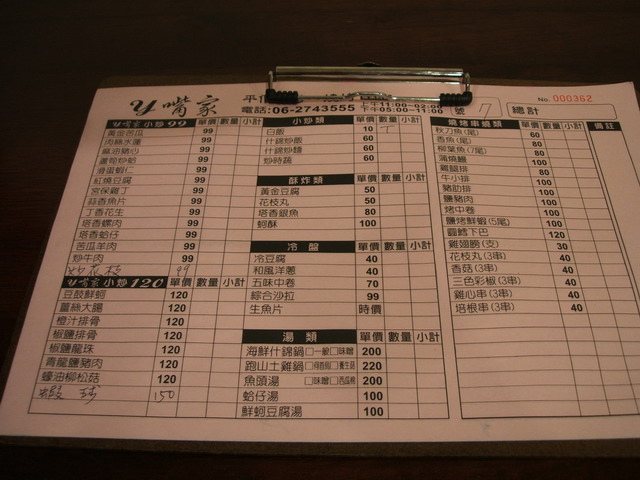 y 嘴家
電話:06-2743555 上午11:00~02:00 下午05:00~11:00
號 17
No. 000362
總計
y嘴家小炒99 單價 數量 小計
黃金苦瓜 99
肉絲水蓮 99
麻油豬心 99
蘆筍炒蛤 99
滑蛋蝦仁 99
紅燒豆腐 99
宮保雞丁 99
蒜香魚片 99
丁香花生 99
塔香螺肉 99
塔香蛤仔 99
苦瓜羊肉 99
炒牛肉 99
炒花枝 99
y嘴家小炒120 單價 數量 小計
豆鼓鮮蚵 120
薑絲大腸 120
橙汁排骨 120
椒鹽排骨 120
椒鹽龍珠 120
青龍鹽豬肉 120
蠔油柳松菇 120
蝦球 150
小炒類 單價 數量 小計
白飯 10
什錦炒飯 60
什錦炒麵 60
炒時蔬 60
酥炸類 單價 數量 小計
黃金豆腐 50
花枝丸 50
塔香銀魚 80
蚵酥 100
冷盤 單價 數量 小計
冷豆腐 40
和風洋蔥 40
五味中卷 70
綜合沙拉 99
生魚片 時價
湯類 單價 數量 小計
海鮮什錦鍋 □一般□味噌 200
跑山土雞鍋 220
魚頭湯 □味噌 200
蛤仔湯 100
鮮蚵豆腐湯 100
燒烤串燒類 單價 數量 小計 備註
秋刀魚(尾) 60
香魚(尾) 80
柳葉魚(7尾) 80
蒲燒鰻 100
雞腿排 100
牛小排 100
豬肋排 100
鹽豬肉 100
烤中卷 100
鹽烤鮮蝦(5尾) 100
圓鱈下巴 120
雞翅膀(支) 30
花枝丸(3串) 40
香菇(3串) 40
三色彩椒(3串) 40
雞心串(3串) 40
培根串(3串) 40